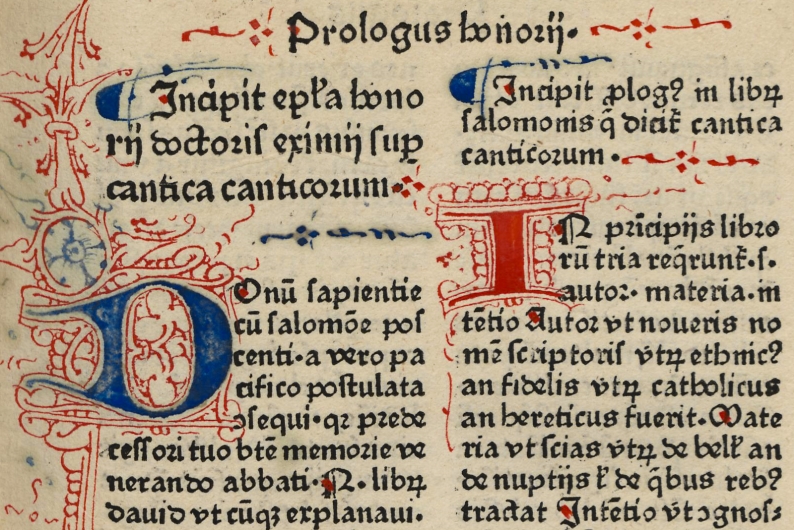 Prologus honorij.
Incipit epła hono
rij doctoris eximij sup
cantica canticorum.
DOnū sapientie
cū salomōe pos
centi. a vero pa
cifico postulata
ꝯsequi. qꝛ prede
cessori tuo btē memorie ve
nerando abbati. N. librꝝ
dauid vt cūqꝫ explanaui.
Incipit ꝓlogꝰ in librꝝ
salomonis q̄ dicit᷑ cantica
canticorum.
IN prīcipijs libro
rū tria req̄runt᷑. s.
autor. materia. in
tētio Autor vt noueris no
mē scriptoris vtrꝝ ethnicꝰ
an fidelis vtrꝝ catholicus
an hereticus fuerit. Mate
ria vt scias vtrꝝ de bell᷑ an
de nuptijs ł de q̄bus rebꝰ
tractat Intētio vt ꝯgnos⸗